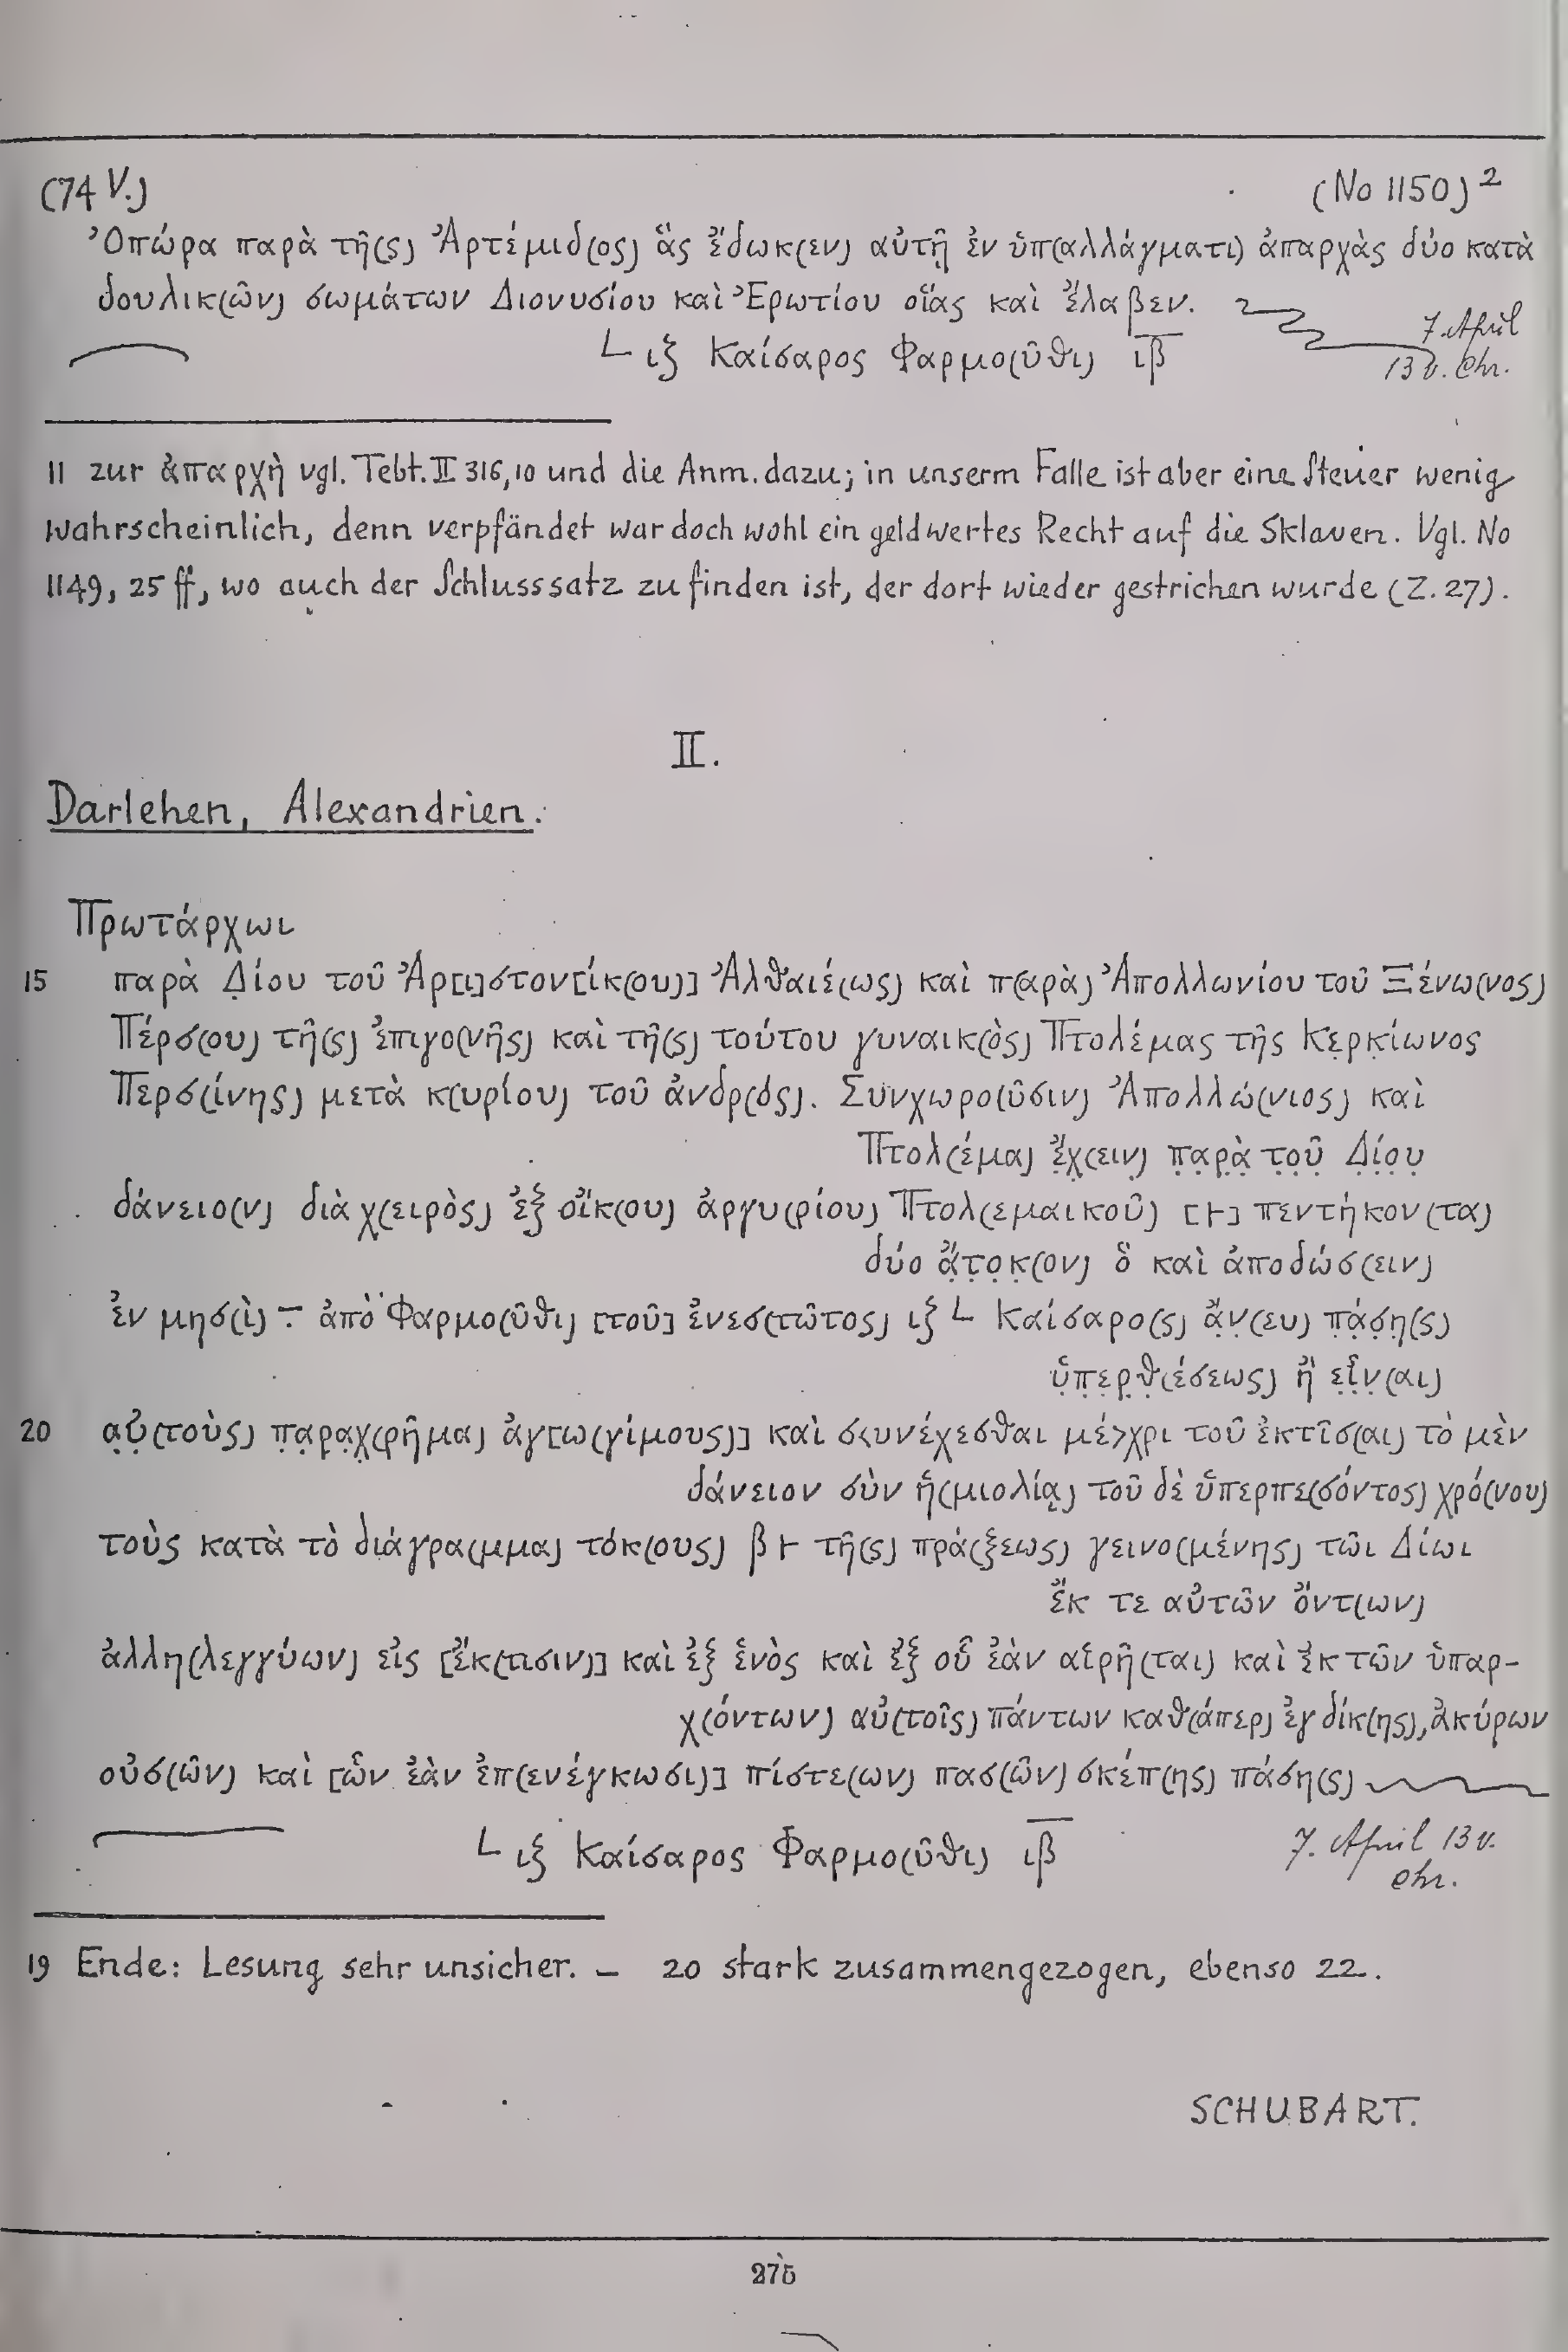 (74 V.)
(No 1150) 2
Ὀπώρα παρὰ τῆ(ς) Ἀρτέμιδ(ος) ἃς ἔδωκ(εν) αὐτῇ ἐν ὑπ(αλλάγματι) ἀπαρχὰς δύο κατὰ
δουλικ(ῶν) σωμάτων Διονυσίου καὶ Ἐρωτίου οἵας καὶ ἔλαβεν.
∟ ιζ Καίσαρος Φαρμο(ῦθι) ιβ̅
7. April
13 v. Chr.
11 zur ἀπαρχὴ vgl. Tebt. II 316,10 und die Anm. dazu; in unserm Falle ist aber eine Steuer wenig
wahrscheinlich, denn verpfändet war doch wohl ein geldwertes Recht auf die Sklaven. Vgl. No
1149, 25 ff, wo auch der Schlusssatz zu finden ist, der dort wieder gestrichen wurde (Z. 27).
II.
Darlehen, Alexandrien.
Πρωτάρχωι
15 παρὰ Δ̣ίου τοῦ Ἀρ[ι]στον[ίκ(ου)] Ἀλθαιέ(ως) καὶ π(αρὰ) Ἀπολλωνίου τοῦ Ξένω(νος)
Πέρσ(ου) τῆ(ς) ἐπιγο(νῆς) καὶ τῆ(ς) τούτου γυναικ(ὸς) Πτολέμας τῆς Κε̣ρκ̣ίωνος
Περσ(ίνης) μετὰ κ(υρίου) τοῦ ἀνδρ(ός). Συνχωρο(ῦσιν) Ἀπολλώ(νιος) καὶ
Πτολ(έμα) ἔ̣χ̣(ειν) π̣α̣ρ̣ὰ̣ τ̣ο̣ῦ̣ Δ̣ί̣ο̣υ̣
δάνειο(ν) διὰ χ(ειρὸς) ἐξ οἴκ(ου) ἀργυ(ρίου) Πτολ(εμαικοῦ) [⊢] πεντήκον(τα)
δύο ἄ̣τ̣ο̣κ̣(ον) ὃ καὶ ἀποδώσ(ειν)
ἐν μησ(ὶ) ⁻ ἀπὸ Φαρμο(ῦθι) [τοῦ] ἐνεσ(τῶτος) ιζ ∟ Καίσαρο(ς) ἄ̣ν̣(ευ) π̣ά̣σ̣η̣(ς)
ὑ̣π̣ε̣ρ̣θ̣(έσεως) ἢ̣ ε̣ἶ̣ν̣(αι)
20 α̣ὐ̣(τοὺς) π̣α̣ρ̣α̣χ̣(ρῆμα) ἀγ[ω(γίμους)] καὶ σ<υνέχεσθαι μέ>χρι τοῦ ἐκτῖσ(αι) τὸ μὲν
δάνειον σὺν ἡ(μιολίᾳ) τοῦ δὲ ὑπερπε(σόντος) χρό(νου)
τοὺς κατὰ τὸ διάγρα(μμα) τόκ(ους) β ⊢ τῆ(ς) πρά(ξεως) γεινο(μένης) τῶι Δίωι
ἔκ τε αὐτῶν ὄντ(ων)
ἀλλη(λεγγύων) εἰς [ἔκ(τισιν)] καὶ ἐξ ἑνὸς καὶ ἐξ οὗ ἐὰν αἱρῆ(ται) καὶ ἐκ τῶν ὑπαρ-
χ(όντων) αὐ(τοῖς) πάντων καθ(άπερ) ἐγ δίκ(ης), ἀκύρων
οὐσ(ῶν) καὶ [ὧν ἐὰν ἐπ(ενέγκωσι)] πίστε(ων) πασ(ῶν) σκέπ(ης) πάση(ς)
∟ ιζ Καίσαρος Φαρμο(ῦθι) ιβ̅
7. April 13 v.
Chr.
19 Ende: Lesung sehr unsicher. — 20 stark zusammengezogen, ebenso 22.
SCHUBART.
275